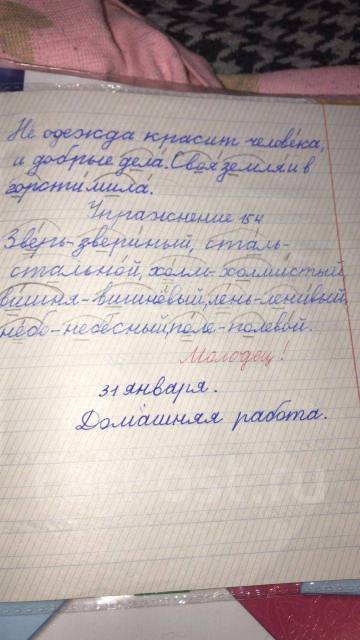 Не одежда красит человека,
и добрые дела. Своя земля и в
горсти мила.
Упражнение 154
Зверь-звериный, сталь-
стальной, холм-холмистый,
вишня-вишнёвый, лень-ленивый,
небо-небесный, поле-полевой.
Молодец!
31 января.
Домашняя работа.